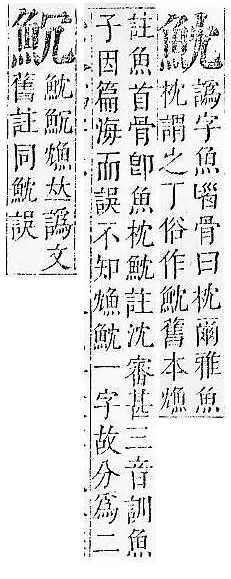 魫譌字魚腦骨曰枕爾雅魚
枕謂之丁俗作魫舊本
註魚首骨卽魚枕魫註沈審甚三音訓魚
子因篇海而誤不知魫一字故分爲二
魫𠀤譌文
舊註同魫誤